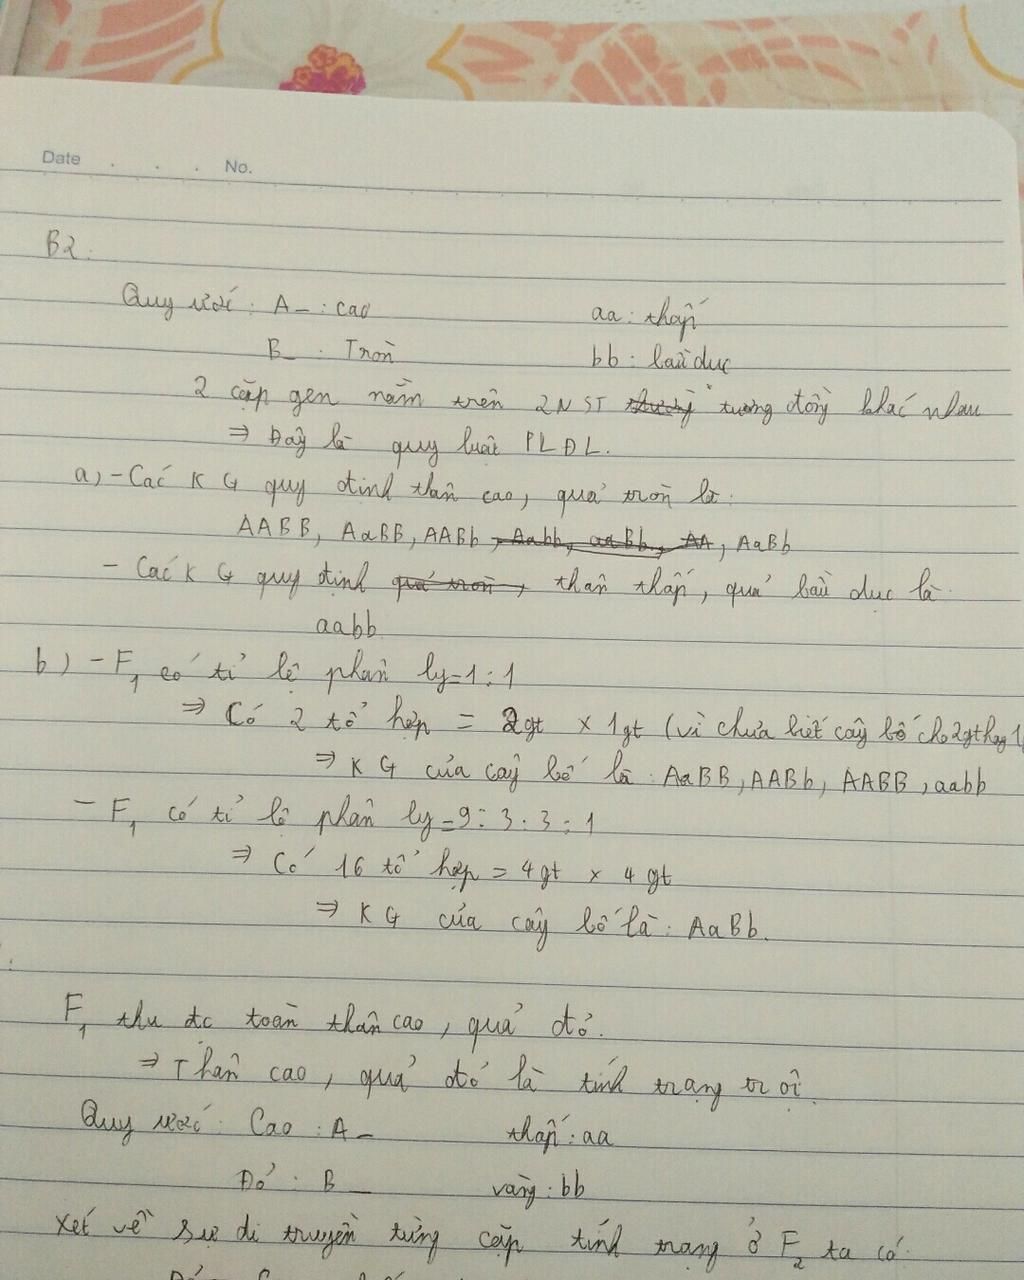 Date . . . No.
B2.
Quy ước: A_ : cao aa: thấp
B_ : Tròn bb: bầu dục
2 cặp gen nằm trên 2NST tương đồng khác nhau
⇒ Đây là quy luật PLĐL.
a) - Các KG quy định thân cao, quả tròn là:
AABB, AaBB, AABb, Aabb, aaBb, AA, AaBb
- Các KG quy định quả tròn, thân thấp, quả bầu dục là
aabb
b) - F1 có tỉ lệ phân ly=1:1
⇒ Có 2 tổ hợp = 2gt × 1gt (vì chưa biết cây bố cho 2gt hay 1
⇒ KG của cây bố là: AaBB, AABb, AABB, aabb
- F1 có tỉ lệ phân ly=9:3:3:1
⇒ Có 16 tổ hợp = 4gt × 4gt
⇒ KG của cây bố là: AaBb.
F1 thu đc toàn thân cao, quả đỏ.
⇒ Thân cao, quả đỏ là tính trạng trội.
Quy ước: Cao : A_ thấp: aa
Đỏ : B_ vàng: bb
Xét về sự di truyền từng cặp tính trạng ở F2 ta có